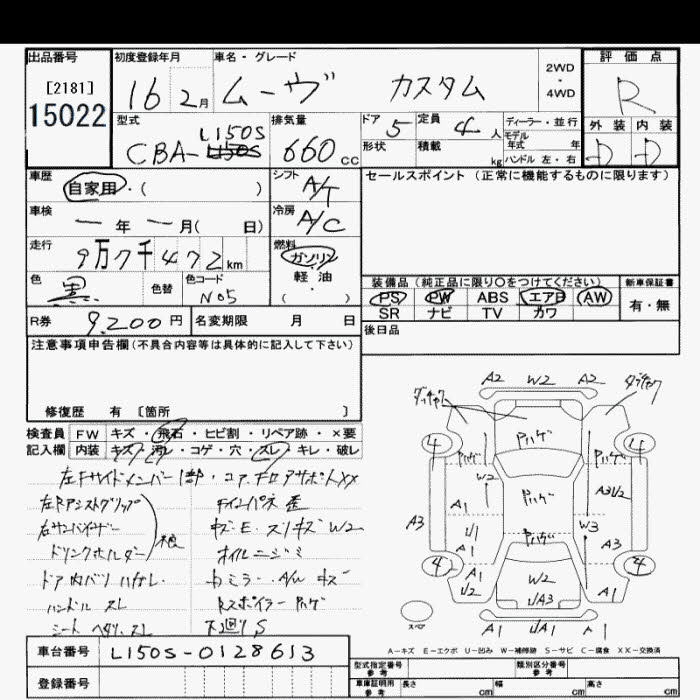 出品番号 初度登録年月 車名・グレード 評価点
[2181]
15022
16 2月 ムーヴ カスタム 2WD・4WD R
型式 排気量 ドア 定員 ディーラー・並行
CBA-L150S 660cc 5 4人 モデル年式 年
形状 積載 kg ハンドル 左・右
外装 内装
D D
車歴 シフト セールスポイント（正常に機能するものに限ります）
自家用・( ) A/T
車検 冷房
ー年ー月( 日) A/C
走行 燃料
9万7千472km ガソリン・軽油
色 色替 色コード ( )
黒 N05
装備品（純正品に限り○をつけてください） 新車保証書
PS PW ABS エアB AW 有・無
SR ナビ TV カワ
R券 9,200円 名変期限 月 日 後日品
注意事項申告欄(不具合内容等は具体的に記入して下さい)
修復歴 有 [箇所 ]
検査員 FW キズ・飛石・ヒビ割・リペア跡・×要
記入欄 内装 キズ・汚レ・コゲ・穴・スレ・キレ・破レ
左Fサイドメンバー1部・コア
左Rアシストグリップ
右サンバイザー キズ・E・スリキズW2
ドリンクホルダー オイルニジミ
ドア内バリハガレ ミラー・A/Wキズ
ハンドルスレ Rスポイラー Pハゲ
シート ヘタリ・スレ 下廻りS
A2 W2 A2
Pハゲ
4 4
Pハゲ Pハゲ
W2 Pハゲ
A1
A3 A1 Pハゲ W3 A3
4 4
A1 W2 A1
A1
スペア
A-キズ E-エクボ U-凹み W-補修跡 S-サビ C-腐食 XX-交換済
車台番号 L150S-0128613
登録番号
型式指定番号 参考 類別区分番号 参考
車庫証明用 参考 長さ cm 幅 cm 高さ cm